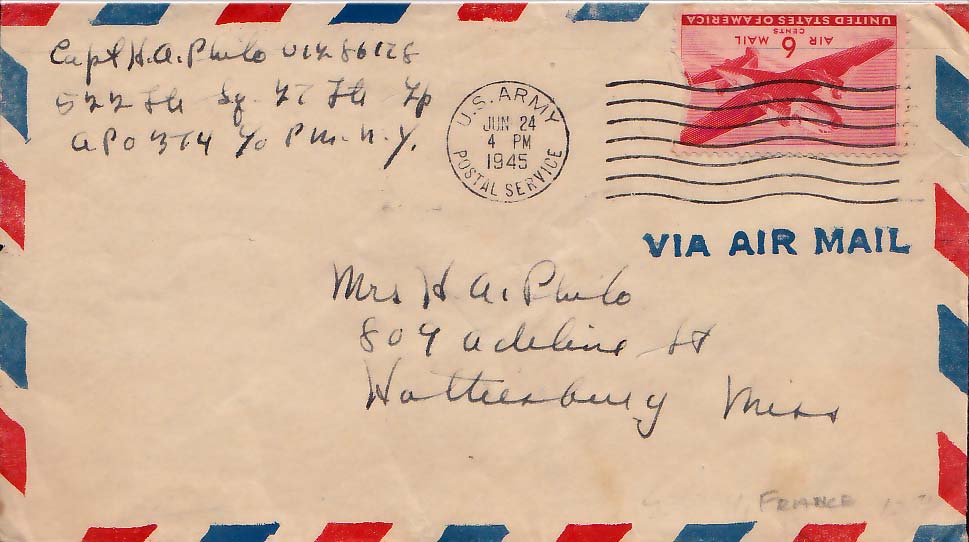 Capt H. A. Philo
522 Sq. 27 Gp
APO 374 c/o P M. N. Y.
U.S. ARMY
JUN 24
4 PM
1945
POSTAL SERVICE
UNITED STATES OF AMERICA
AIR MAIL
6
CENTS
VIA AIR MAIL
Mrs H. A. Philo
804 Adeline St
Hattiesburg Miss
FRANCE